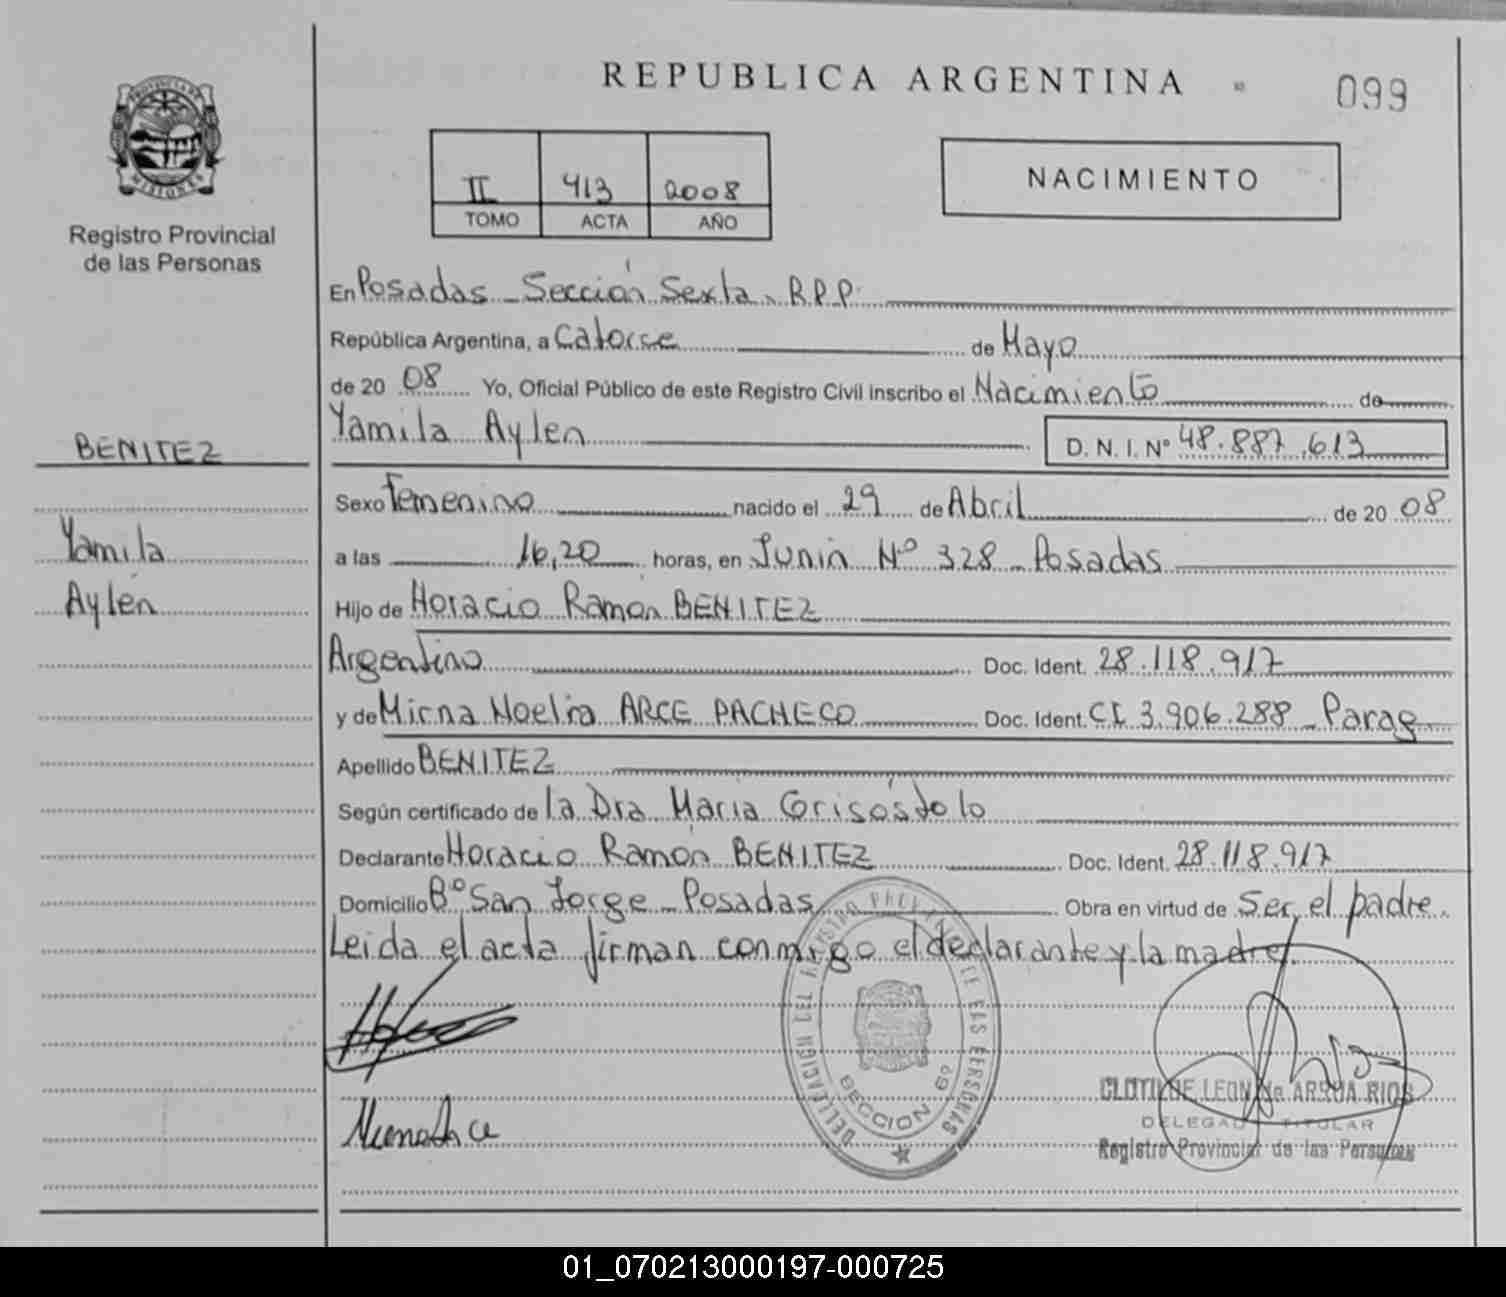 REPUBLICA ARGENTINA
099
PROVINCIA DE
MISIONES
Registro Provincial
de las Personas
II 413 2008
TOMO ACTA AÑO
NACIMIENTO
En Posadas - Sección Sexta. R.P.P.
República Argentina, a Catorse de Mayo
de 20 08 Yo, Oficial Público de este Registro Civil inscribo el Nacimiento de
Yamila Aylen D. N. I. Nº 48.887.613
BENITEZ
Yamila
Aylén
Sexo Femenino nacido el 29 de Abril de 20 08
a las 16,20 horas, en Junin Nº 328 - Posadas
Hijo de Horacio Ramon BENITEZ
Argentino Doc. Ident. 28.118.917
y de Mirna Noelia ARCE PACHECO Doc. Ident. CI 3.906.288 - Parag
Apellido BENITEZ
Según certificado de la Dra Maria Grisóstolo
Declarante Horacio Ramón BENITEZ Doc. Ident. 28.118.917
Domicilio Bº San Jorge - Posadas Obra en virtud de Ser el padre.
Leida el acta firman conmigo el declarante y la madre.
DELEGACION DEL REGISTRO PROVINCIAL DE LAS PERSONAS
SECCION 6º
CLOTILDE LEON de ARRUA RIOS
DELEGADO TITULAR
Registro Provincial de las Personas
01_070213000197-000725